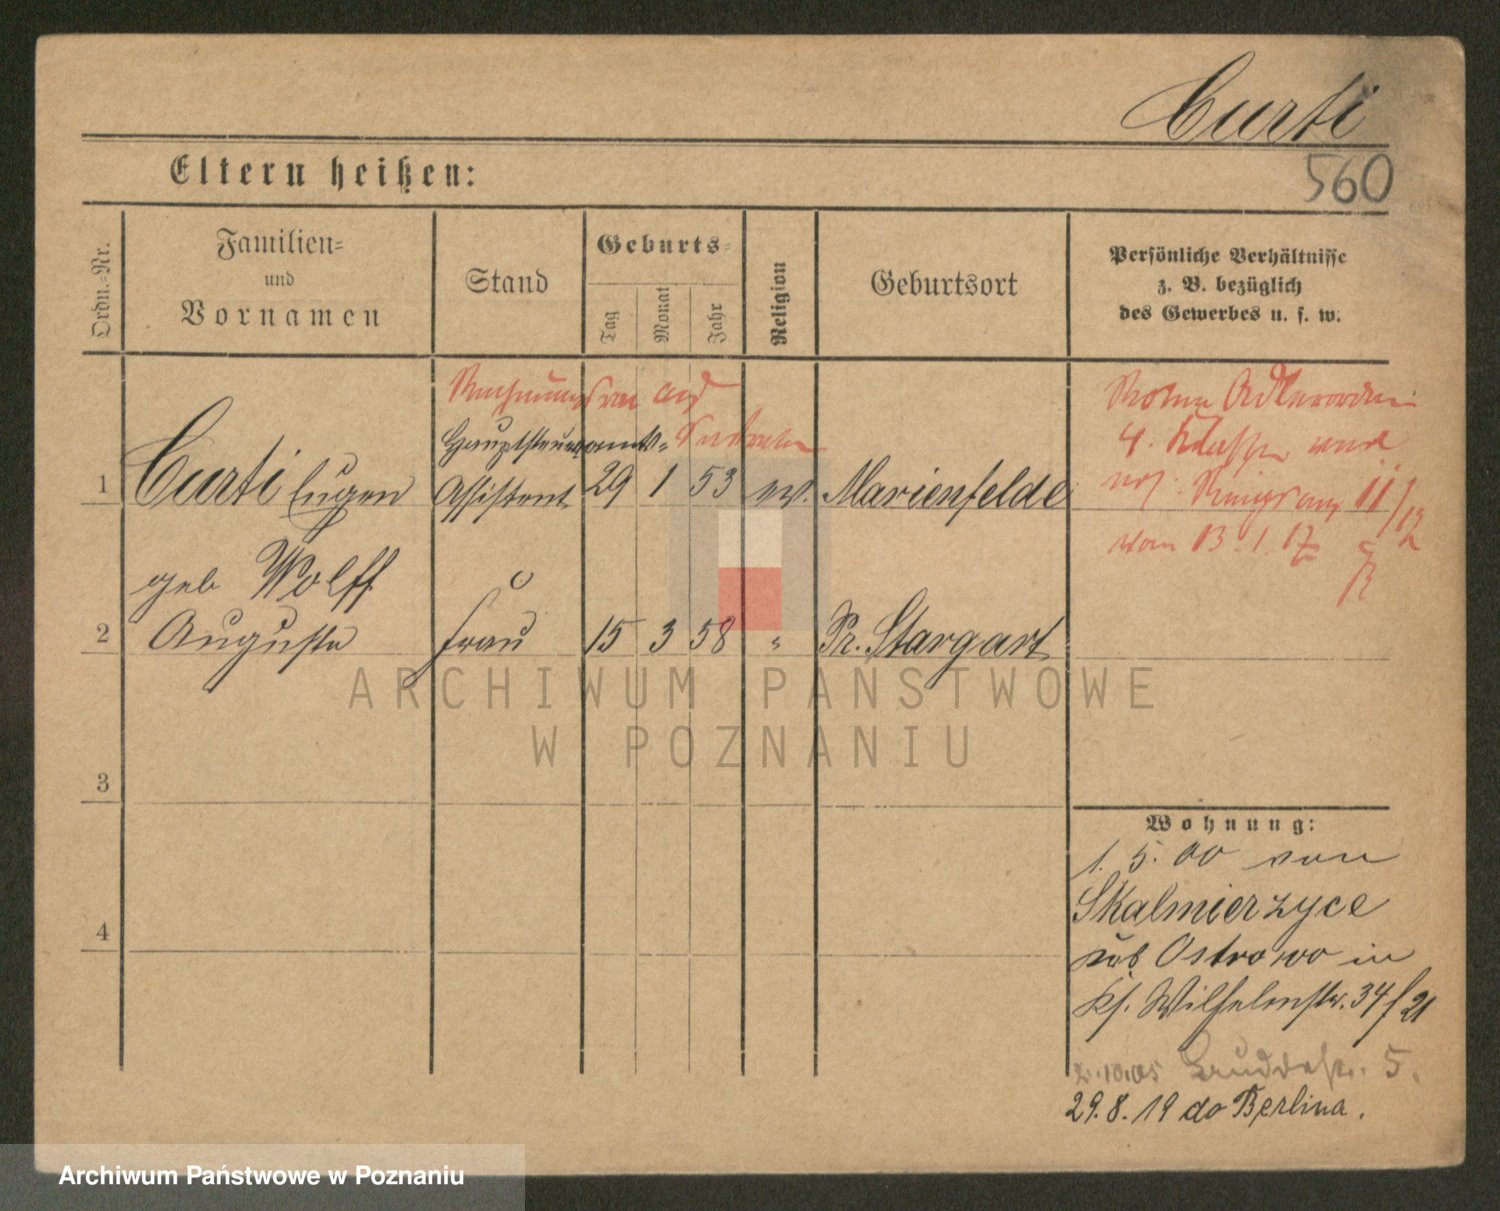 Curti
560
Eltern heißen:
Ordn.-Nr.
Familien-
und
Vornamen
Stand
Geburts-
Tag
Monat
Jahr
Religion
Geburtsort
Persönliche Verhältnisse
z. B. bezüglich
des Gewerbes u. s. w.
Hauptsteueramts-
1 Curti Eugen Assistent 29 1 53 ev. Marienfelde
Roter Adlerorden
4. Klasse
vom 13.1.17
geb Wolff
2 Auguste Frau 15 3 58 " Pr. Stargart
3
4
Wohnung:
1. 5. 00 von
Skalmierzyce
Ostrowo in
Wilhelmstr. 34/21
2.10.05 5.
29.8.19 do Berlina.
ARCHIWUM PAŃSTWOWE
W POZNANIU
Archiwum Państwowe w Poznaniu